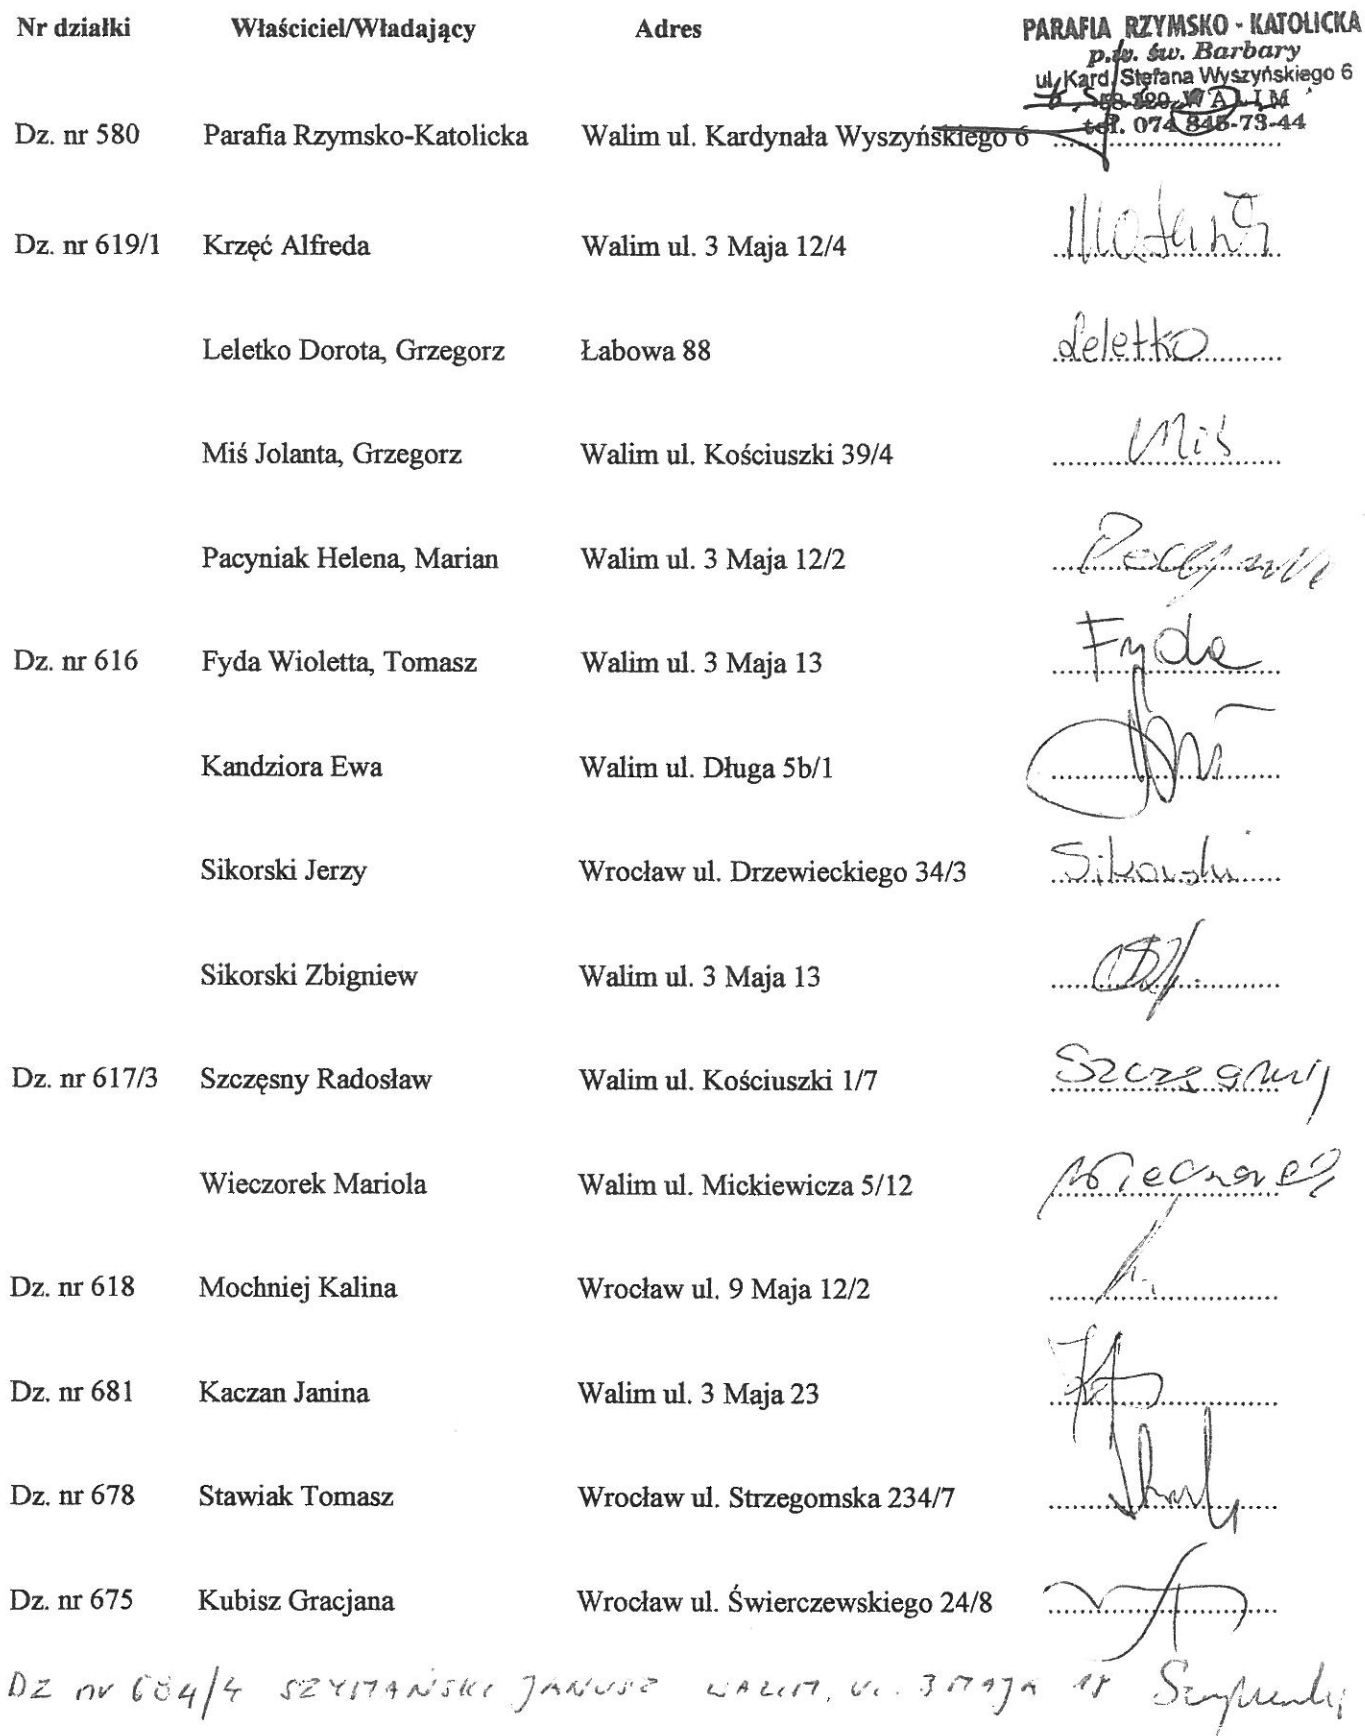 Nr działki Właściciel/Władający Adres
PARAFIA RZYMSKO - KATOLICKA
p.w. św. Barbary
ul. Kard. Stefana Wyszyńskiego 6
58-320 WALIM
tel. 074 845-73-44
Dz. nr 580 Parafia Rzymsko-Katolicka Walim ul. Kardynała Wyszyńskiego 6 ..............................
Dz. nr 619/1 Krzęć Alfreda Walim ul. 3 Maja 12/4 ..............................
Leletko Dorota, Grzegorz Łabowa 88 Leletko
Miś Jolanta, Grzegorz Walim ul. Kościuszki 39/4 Miś
Pacyniak Helena, Marian Walim ul. 3 Maja 12/2 Pacyniak
Dz. nr 616 Fyda Wioletta, Tomasz Walim ul. 3 Maja 13 Fyda
Kandziora Ewa Walim ul. Długa 5b/1 ..............................
Sikorski Jerzy Wrocław ul. Drzewieckiego 34/3 Sikorski
Sikorski Zbigniew Walim ul. 3 Maja 13 ..............................
Dz. nr 617/3 Szczęsny Radosław Walim ul. Kościuszki 1/7 Szczęsny
Wieczorek Mariola Walim ul. Mickiewicza 5/12 Wieczorek
Dz. nr 618 Mochniej Kalina Wrocław ul. 9 Maja 12/2 ..............................
Dz. nr 681 Kaczan Janina Walim ul. 3 Maja 23 ..............................
Dz. nr 678 Stawiak Tomasz Wrocław ul. Strzegomska 234/7 ..............................
Dz. nr 675 Kubisz Gracjana Wrocław ul. Świerczewskiego 24/8 ..............................
DZ nr 684/4 SZYMAŃSKI JANUSZ WALIM, UL. 3 MAJA 18 Szymański